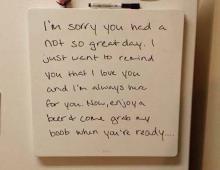 I'm sorry you had a
not so great day. I
just want to remind
you that I love you
and I'm always here
for you. Now, enjoy a
beer & come grab my
boob when you're ready....